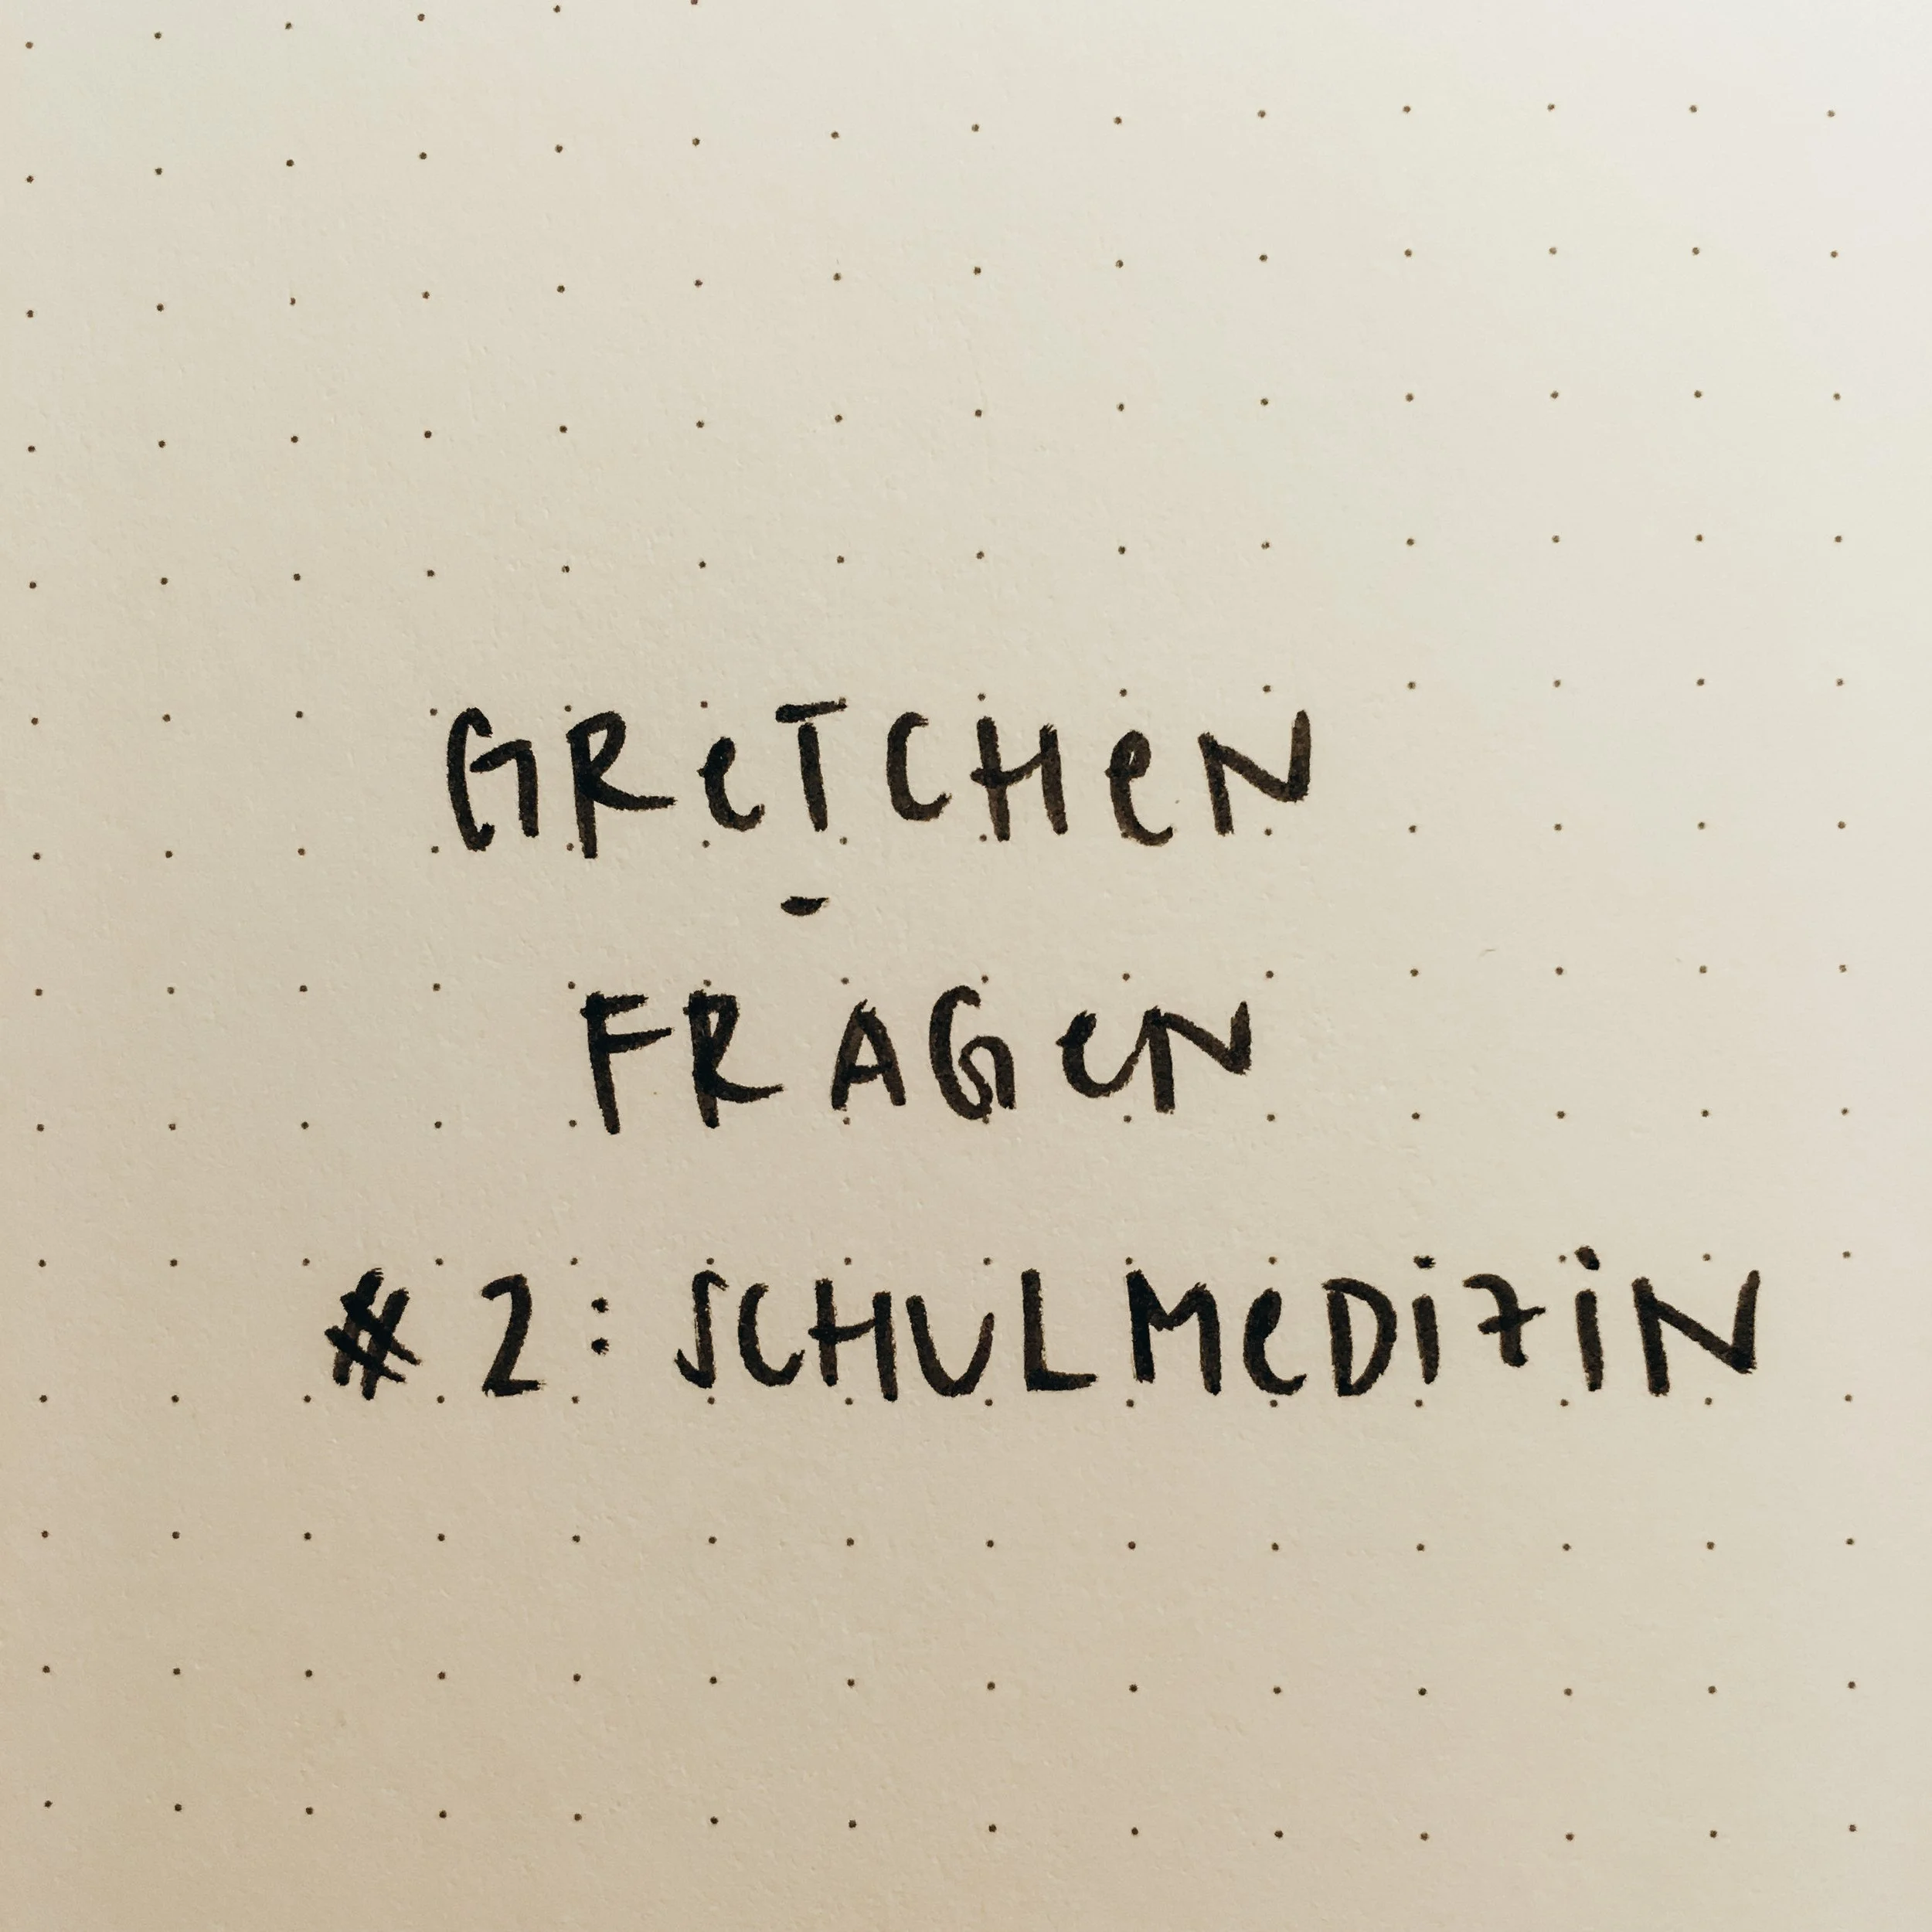 GReTCHeN
-
FRAGeN
# 2: SCHULMeDiZiN